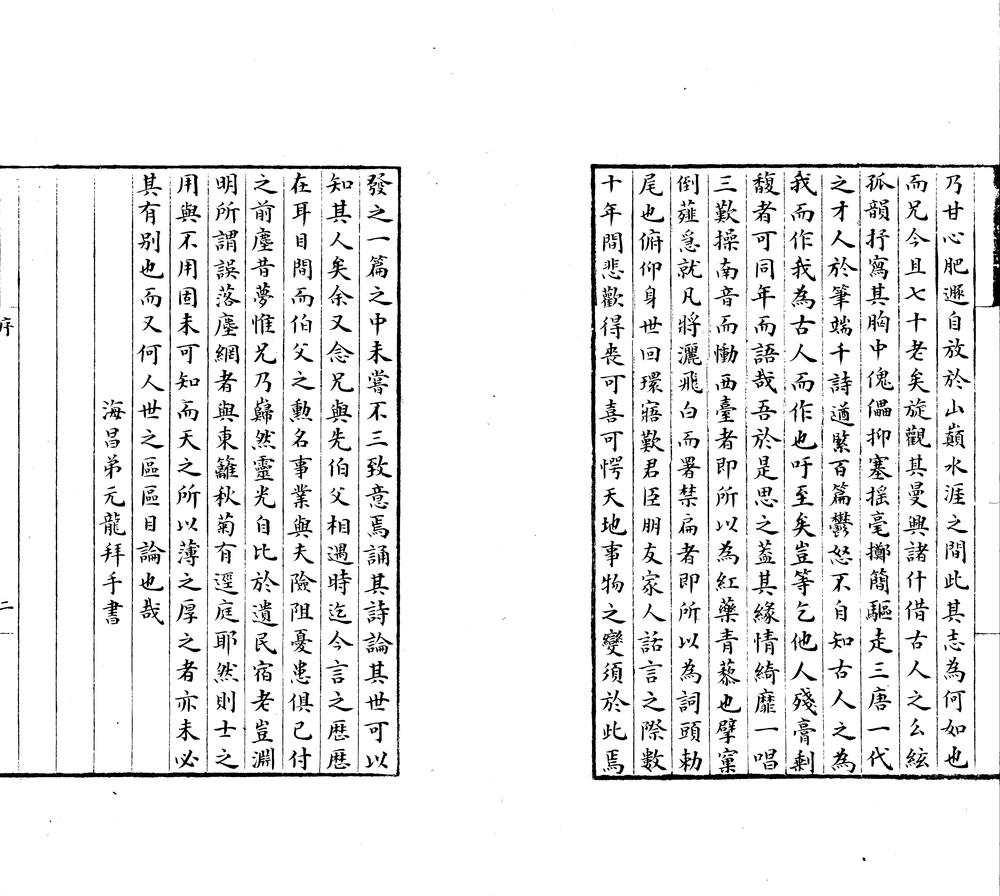 乃甘心肥遯自放於山巔水涯之間此其志為何如也
而兄今且七十老矣旋觀其曼興諸什借古人之么絃
孤韻抒寫其胸中傀儡抑塞搖毫擲簡驅走三唐一代
之才人於筆端千詩遒緊百篇鬱怒不自知古人之為
我而作我為古人而作也吁至矣豈等乞他人殘膏剩
馥者可同年而語哉吾於是思之葢其緣情綺靡一唱
三歎操南音而慟西臺者即所以為紅藥青藜也擘窠
倒薤急就凡將灑飛白而署禁扁者即所以為詞頭勅
尾也俯仰身世回環寤歎君臣朋友家人話言之際數
十年間悲歡得喪可喜可愕天地事物之變須於此焉
發之一篇之中未嘗不三致意焉誦其詩論其世可以
知其人矣余又念兄與先伯父相遇時迄今言之歷歷
在耳目間而伯父之勳名事業與夫險阻憂患俱已付
之前塵昔夢惟兄乃巋然靈光自比於遺民宿老豈淵
明所謂誤落塵網者與東籬秋菊有逕庭耶然則士之
用與不用固未可知而天之所以薄之厚之者亦未必
其有別也而又何人世之區區目論也哉
海昌弟元龍拜手書
序
二